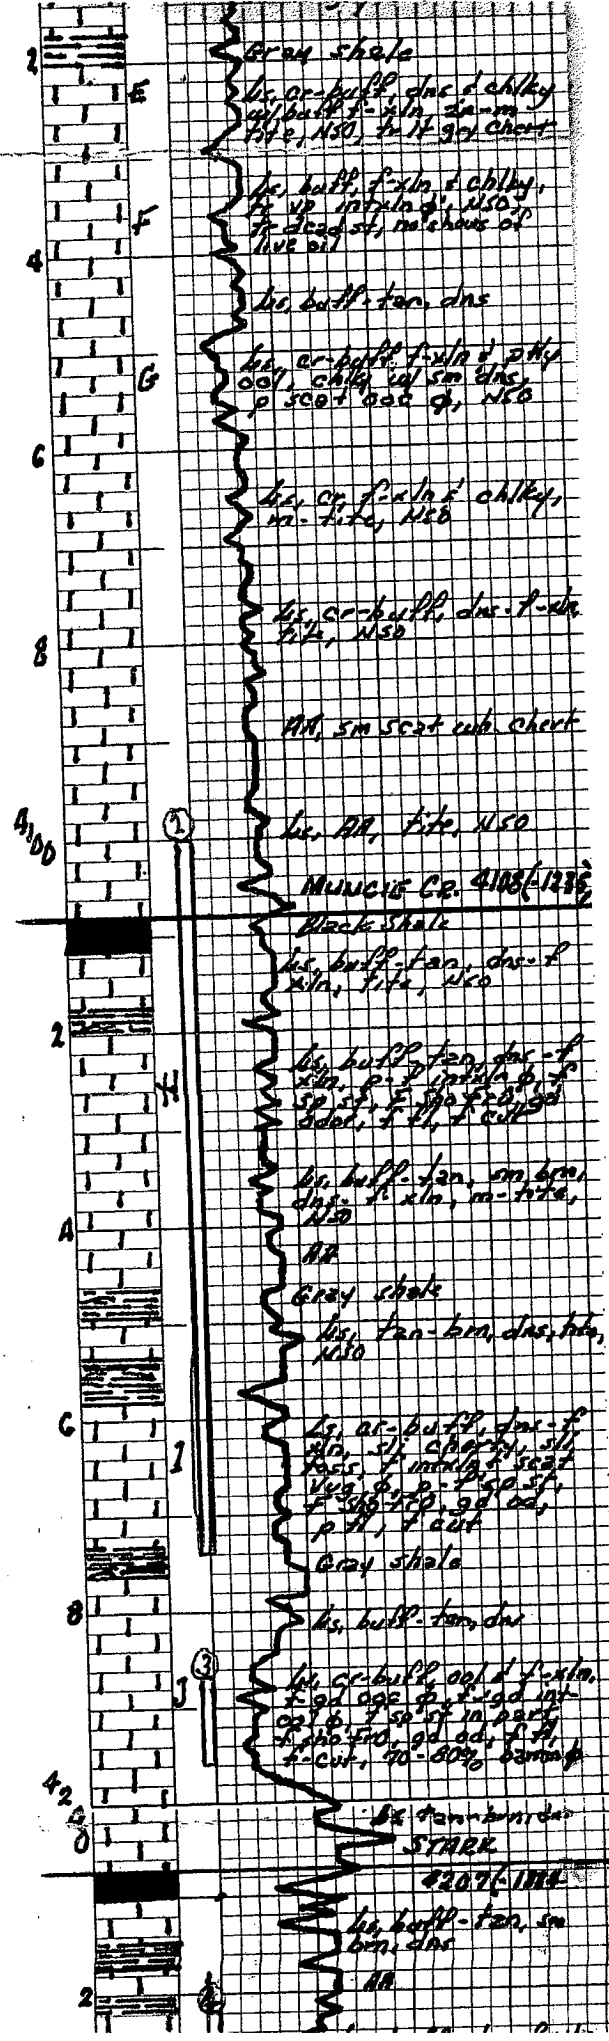 2
Gray shale
E
Ls, cr-buff, dns & chlky
w/buff f-xln
tite, NSO, tr lt gry chert
Ls, buff, f-xln & chlky,
tr vp intxln ϕ, NSO,
F
tr dead st, no shows of
live oil
4
Ls, buff-tan, dns
Ls, cr-buff, f-xln &
G
ool, chlky w/ sm dns,
p scat ooc ϕ, NSO
6
Ls, cr, f-xln & chlky,
m-tite, NSO
Ls, cr-buff, dns-f-xln
8
tite, NSO
AA, sm scat wh chert
1
4100
Ls, AA, tite, NSO
MUNCIE CR. 4108(-1285
Black Shale
Ls, buff-tan, dns-f
xln, tite, NSO
2
Ls, buff-tan, dns-f
H
xln, p-f intxln ϕ, f
sp st, f sho fro, gd
odor, f fl, f cut
Ls, buff-tan, sm brn,
dns-f xln, m-tite,
4
NSO
AA
Gray shale
Ls, tan-brn, dns, tite,
NSO
6
Ls, cr-buff, dns-f
xln, sli cherty, sli
I
foss, f intxln & scat
vug ϕ, p-f sp st,
f sho fro, gd od,
p fl, f cut
Gray shale
8
Ls, buff-tan, dns
3
J
Ls, cr-buff ool & f-xln,
f-gd ooc ϕ, f-gd int-
ool ϕ, f sp st in part
f sho fro, gd od, f fl,
f-cut, 70-80% barren ϕ
4200
Ls tan-brn, dns
STARK
4207(-1384
Ls, buff-tan, sm
brn, dns
AA
2